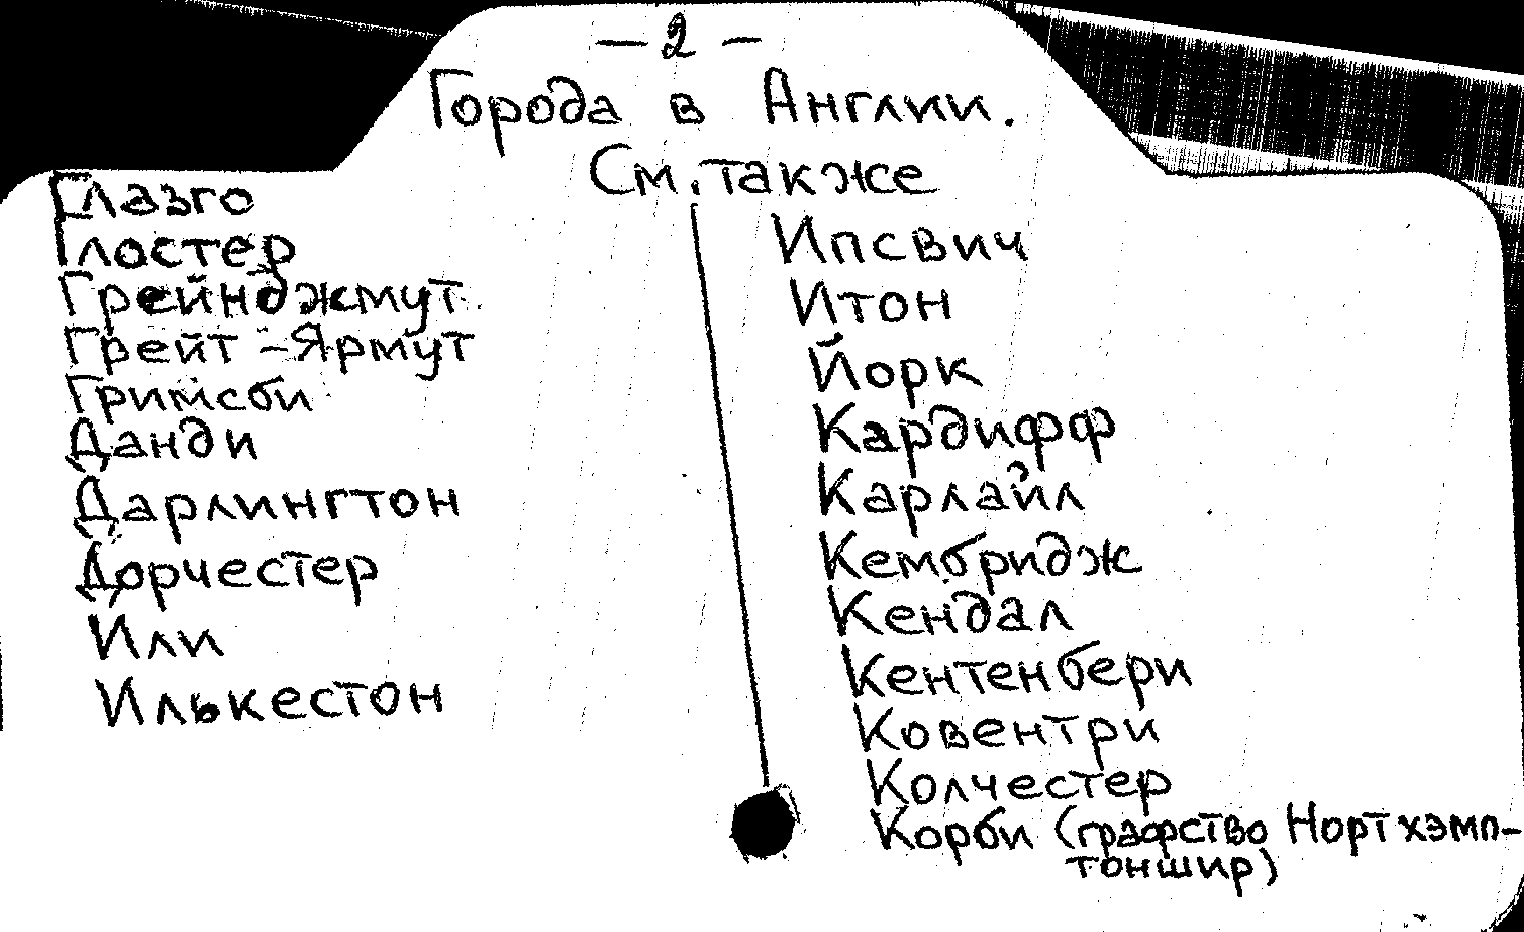 — 2 —
Города в Англии.
См. также
Глазго
Глостер
Грейнджмут
Грейт-Ярмут
Гримсби
Данди
Дарлингтон
Дорчестер
Или
Илькестон
Ипсвич
Итон
Йорк
Кардифф
Карлайл
Кембридж
Кендал
Кентенбери
Ковентри
Колчестер
Корби (графство Нортхэмп-
тоншир)